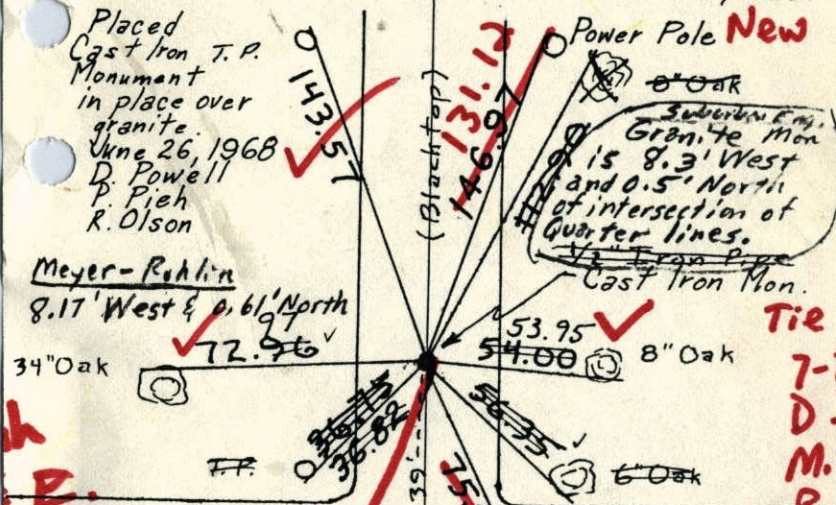 Placed
Cast Iron T.P.
Monument
in place over
granite.
June 26, 1968
D. Powell
P. Pieh
R. Olson
Meyer-Rohlin
8.17' West & 0.61' North
143.57
(Blacktop)
131.12
146.97
Power Pole New
8" Oak
Suburban Eng.
Granite Mon
is 8.3' West
and 0.5' North
of intersection of
Quarter lines.
1/2" Iron Pipe
Cast Iron Mon.
97
72.96
34" Oak
53.95
54.00
8" Oak
Tie
36.82
56.35
T.P.
6" Oak
39'
75.
7-
D.
M.